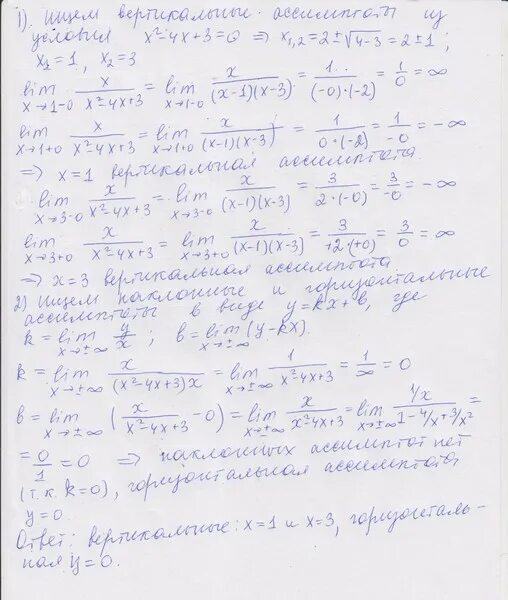 1). Ищем вертикальные ассимптоты из
условия x²-4x+3=0 ⇒ x₁,₂=2±√4-3=2±1;
x₁=1, x₂=3
lim x→1-0 x/(x²-4x+3) = lim x→1-0 x/((x-1)(x-3)) = 1/((-0)·(-2)) = 1/0 = ∞
lim x→1+0 x/(x²-4x+3) = lim x→1+0 x/((x-1)(x-3)) = 1/(0·(-2)) = 1/-0 = -∞
⇒ x=1 вертикальная ассимптота
lim x→3-0 x/(x²-4x+3) = lim x→3-0 x/((x-1)(x-3)) = 3/(2·(-0)) = 3/-0 = -∞
lim x→3+0 x/(x²-4x+3) = lim x→3+0 x/((x-1)(x-3)) = 3/(+2·(+0)) = 3/0 = ∞
⇒ x=3 вертикальная ассимптота
2) Ищем наклонные и горизонтальные
ассимптоты в виде y=kx+b, где
k=lim x→±∞ y/x; b=lim x→±∞ (y-kx).
k=lim x→±∞ x/((x²-4x+3)x) = lim x→±∞ 1/(x²-4x+3) = 1/∞ = 0
b=lim x→±∞ (x/(x²-4x+3) -0) = lim x→±∞ x/(x²-4x+3) = lim x→±∞ (1/x)/(1-4/x+3/x²) =
= 0/1 = 0 ⇒ наклонных ассимптот нет
(т.к. k=0), горизонтальная ассимптота
y=0.
Ответ: вертикальные: x=1 и x=3, горизонталь-
ная y=0.